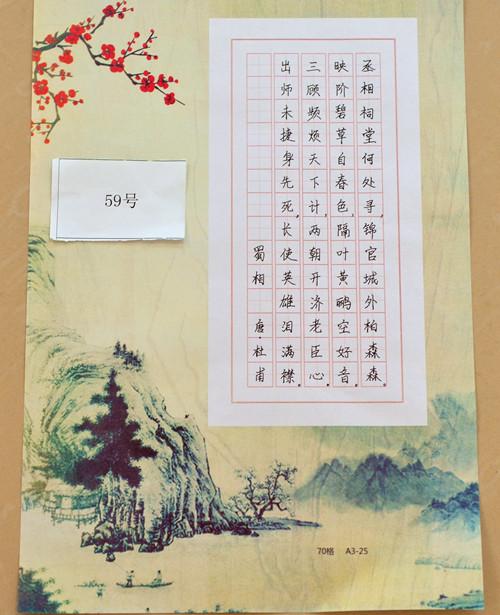 丞相祠堂何处寻,锦官城外柏森森。
映阶碧草自春色,隔叶黄鹂空好音。
三顾频烦天下计,两朝开济老臣心。
出师未捷身先死,长使英雄泪满襟。
蜀相 唐·杜甫
59号
70格 A3-25